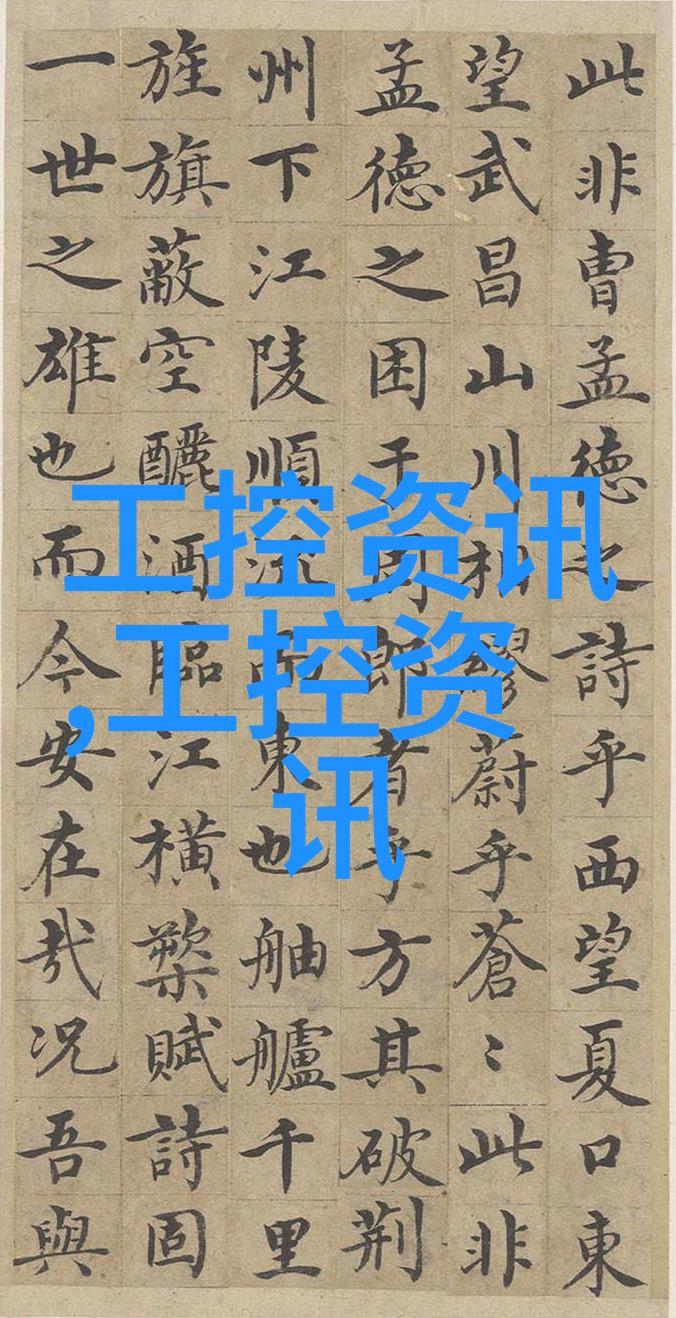 此非曹孟德之詩乎西望夏口東
望武昌山川相繆蔚乎蒼〻此非
孟德之困于周郎者乎方其破荆
州下江陵順流而東也舳艫千里
旌旗蔽空釃酒臨江横槊賦詩固
一世之雄也而今安在哉况吾與
工控资讯
,工控资
讯